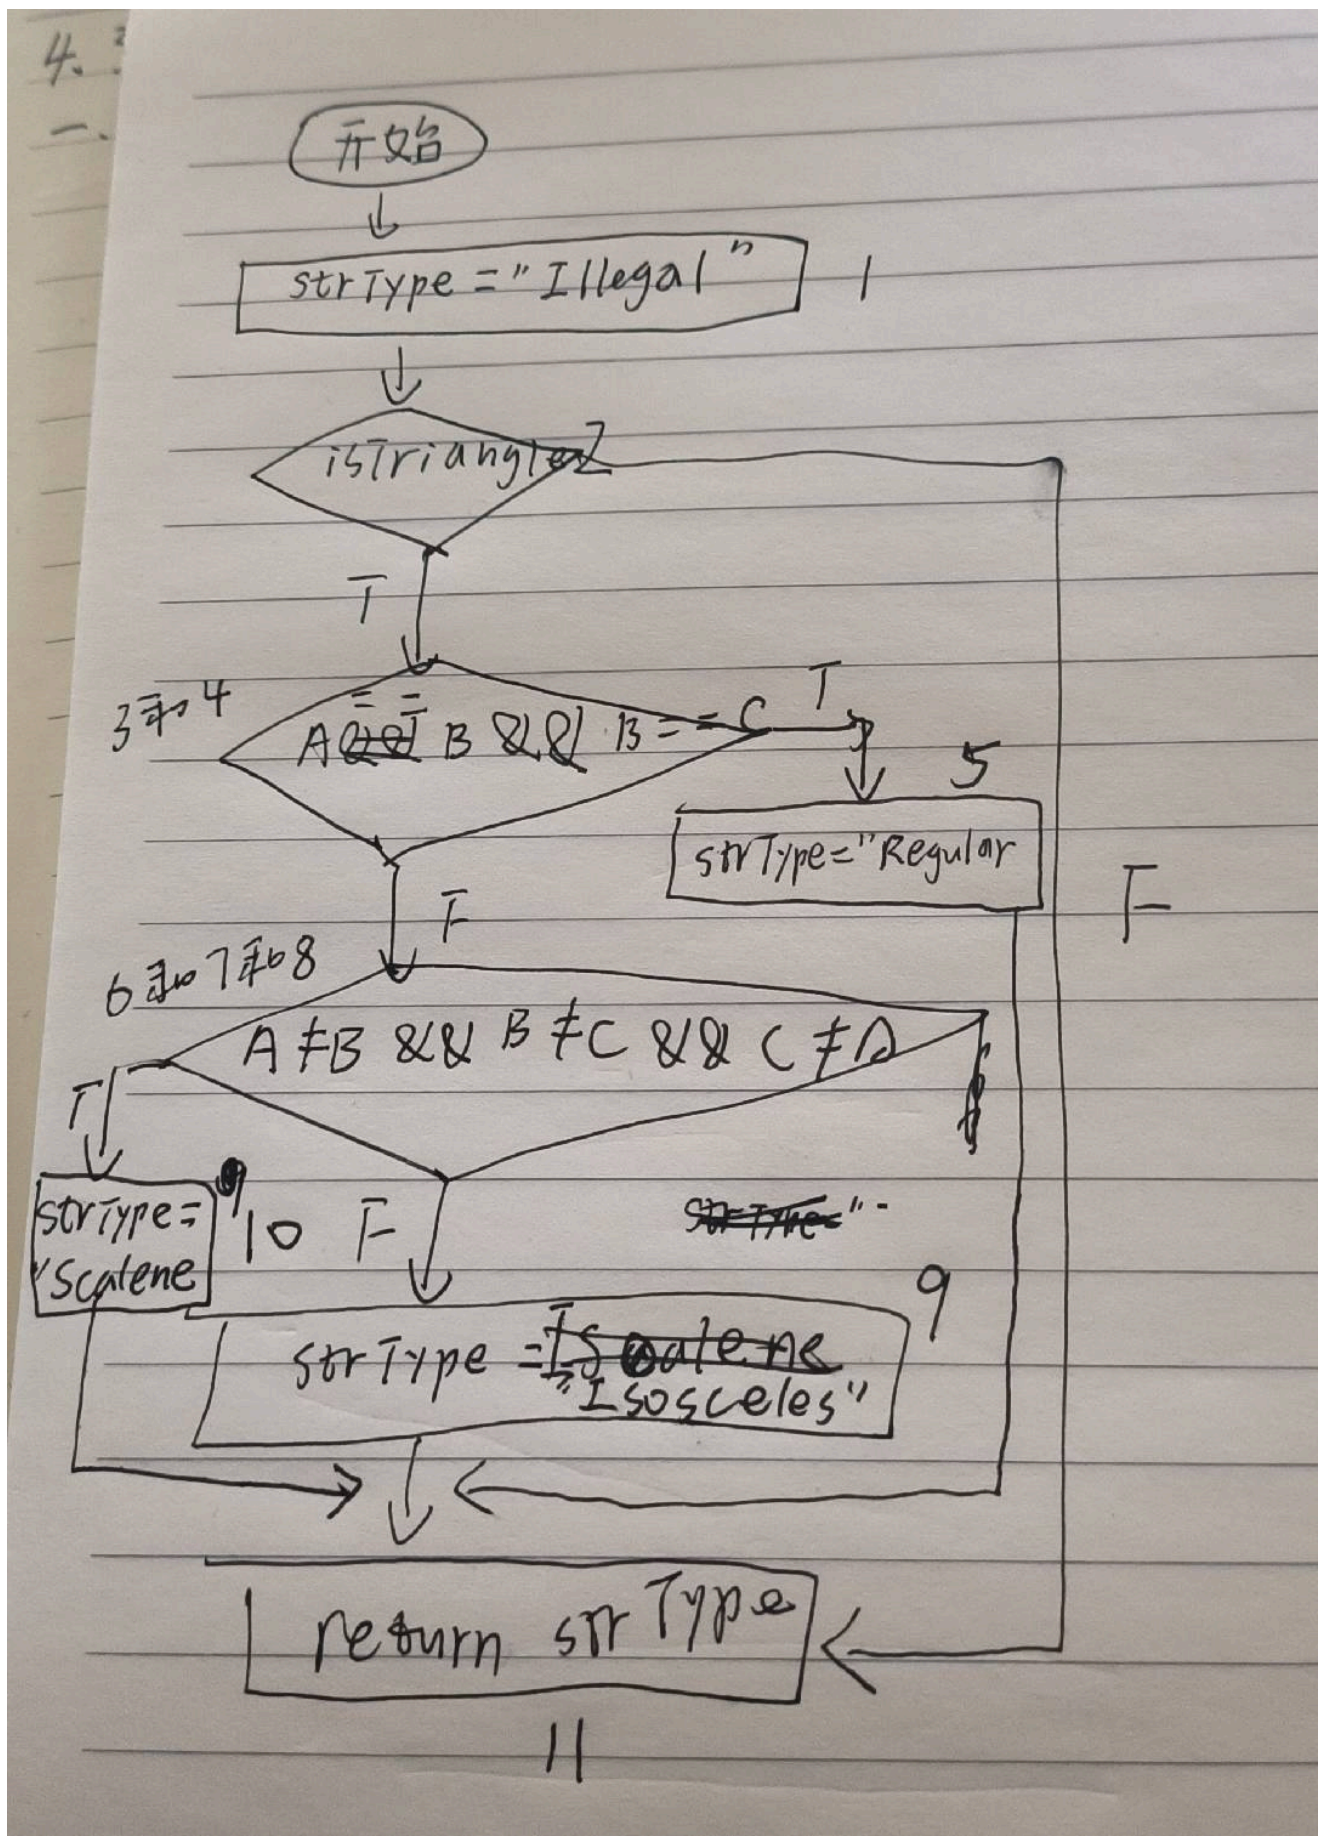 4.
一.
开始
strType = "Illegal" 1
isTriangle 2
T
3和4
A == B && B == C T
5
strType="Regular
F
F
6和7和8
A ≠ B && B ≠ C && C ≠ A
T
strType=
"Scalene
10 F
9
strType =
"Isosceles"
return strType
11